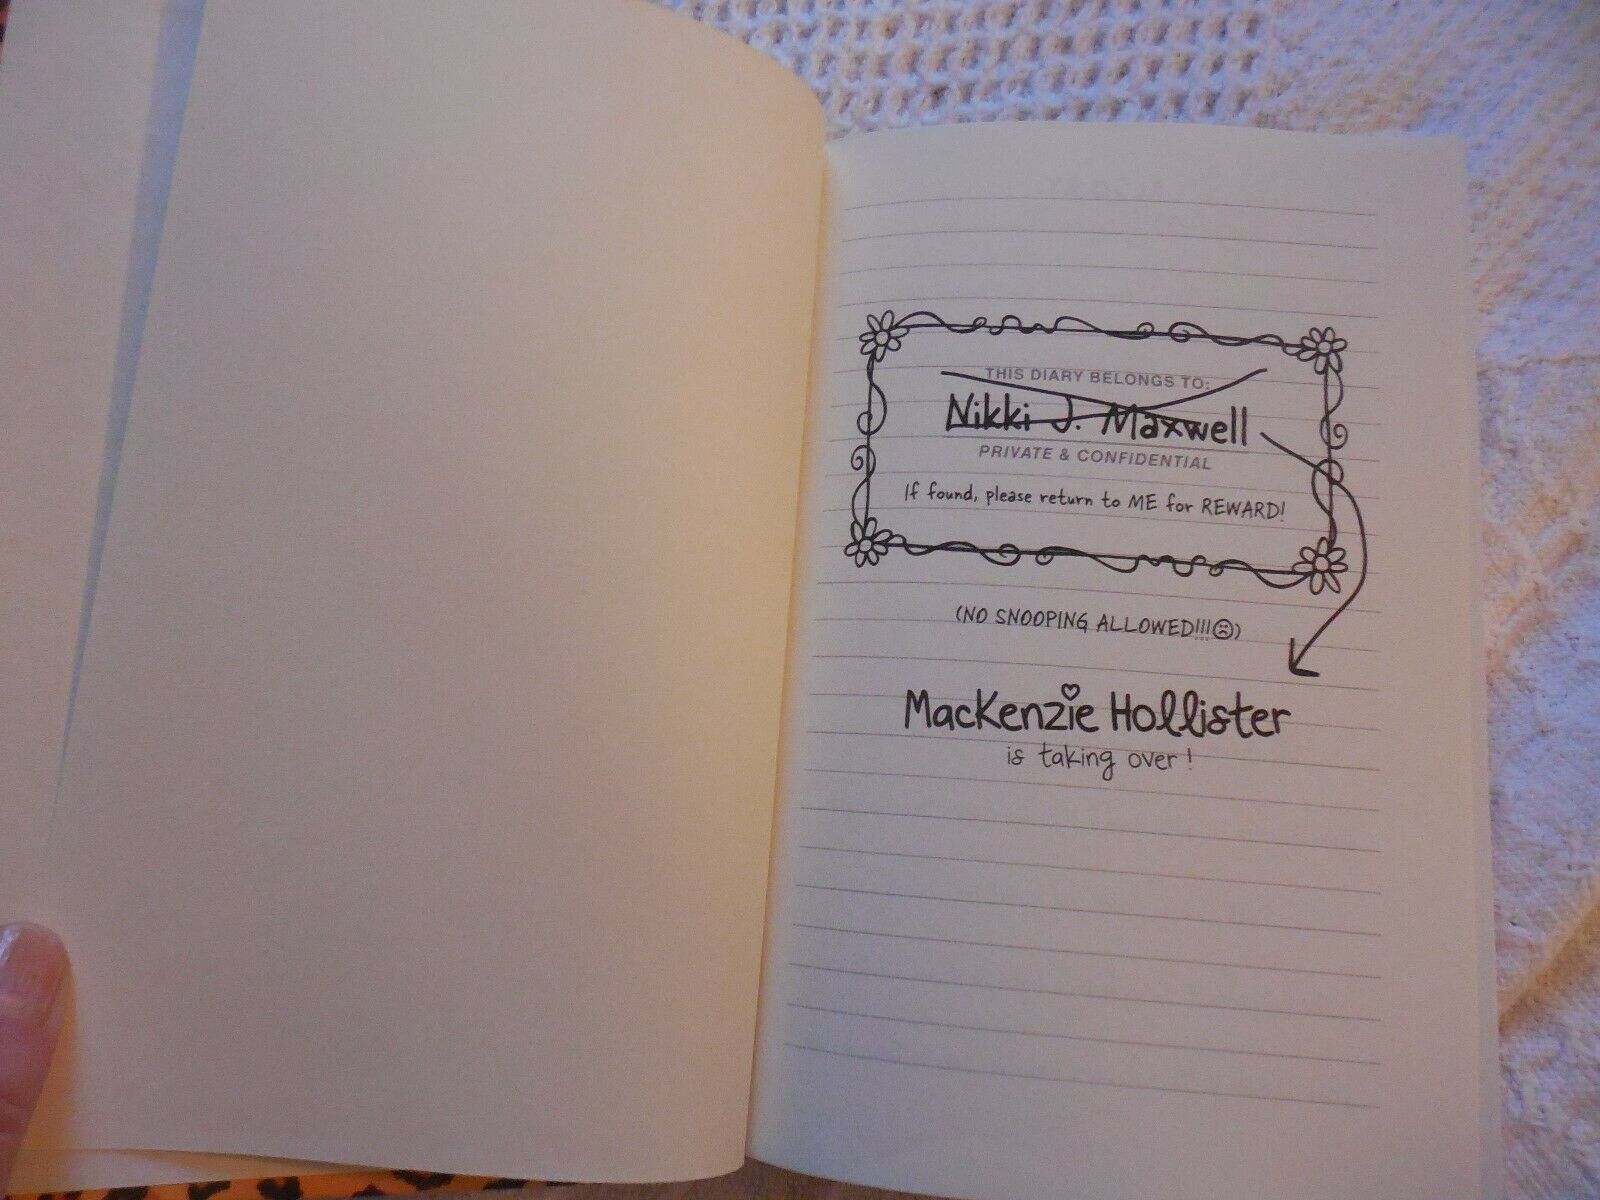 THIS DIARY BELONGS TO:
Nikki J. Maxwell
PRIVATE & CONFIDENTIAL
If found, please return to ME for REWARD!
(NO SNOOPING ALLOWED!!!☹)
MacKenzie Hollister
is taking over!